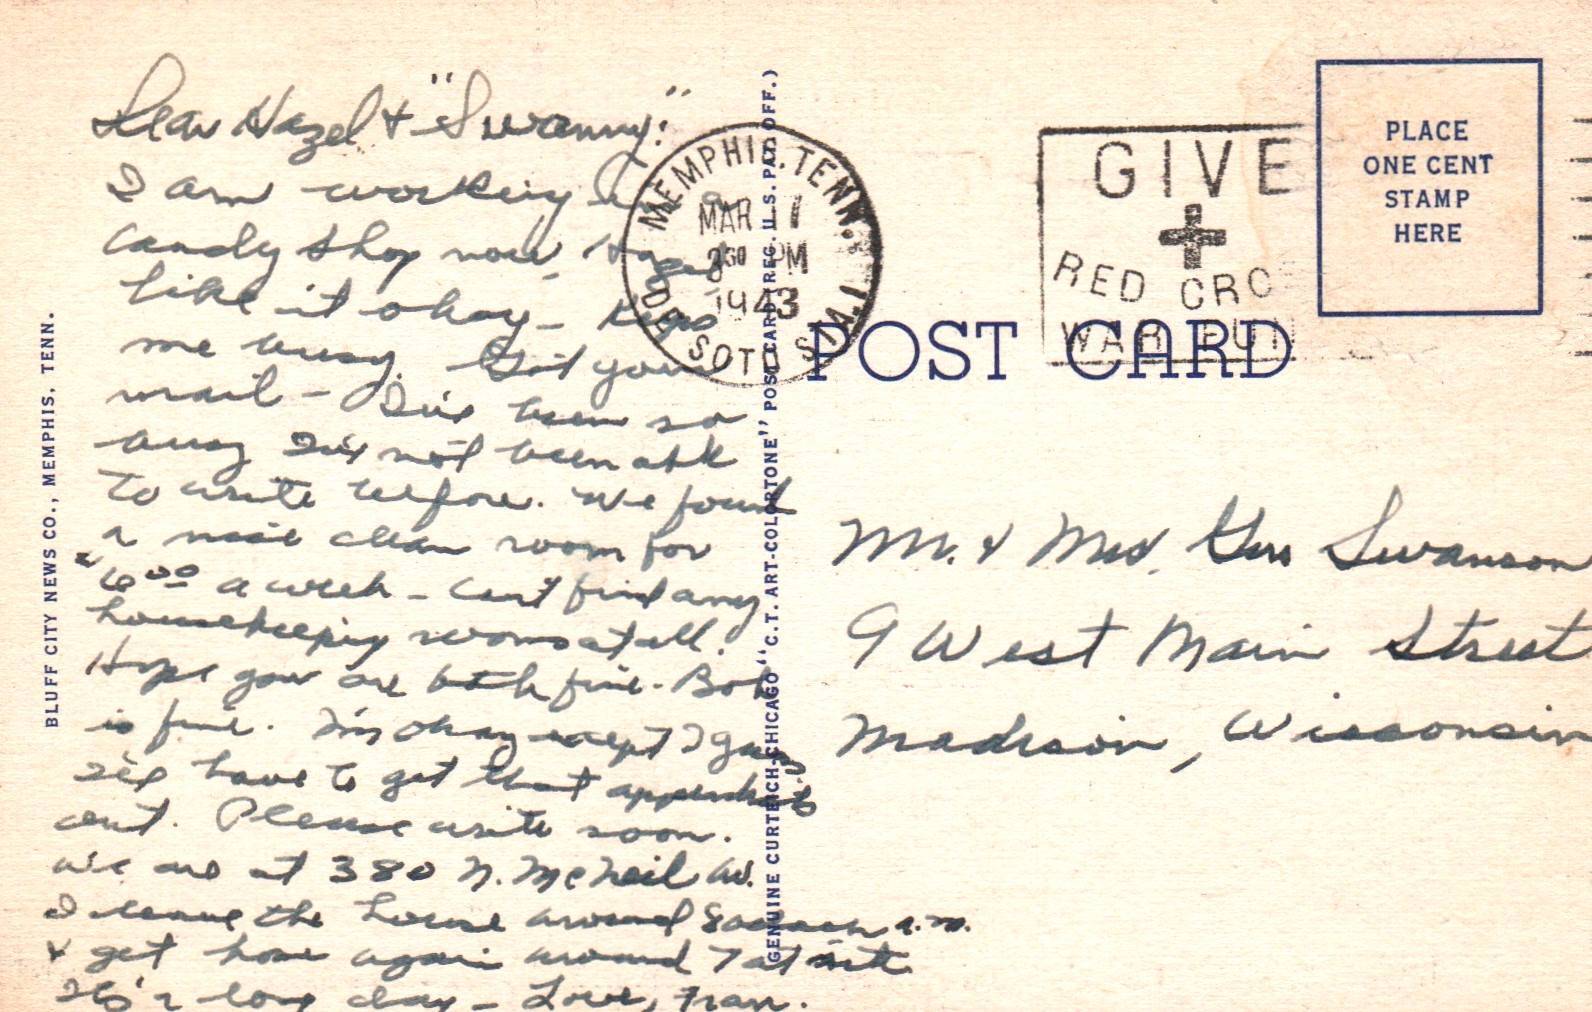 Dear Hazel & "Swanny:"
I am working in a
candy shop now, & I
like it okay - keeps
me busy. Got your
mail - I've been so
busy I've not been able
to write before. We found
a nice clean room for
"6.00 a week - Can't find any
housekeeping rooms at all.
Hope you are both fine. Bob
is fine. I'm okay except I guess
I'll have to get that appendix
out. Please write soon.
We are at 380 N. McNeil Av.
I leave the house around 8 a.m.
& get home again around 7 at nite
It's a long day - Love, Fran.
BLUFF CITY NEWS CO., MEMPHIS, TENN.
GENUINE CURTEICH-CHICAGO "C.T. ART-COLORTONE" POST CARD (REG. U.S. PAT. OFF.)
MEMPHIS, TENN.
MAR 17
3 30 PM
1943
DE SOTO STA.
GIVE
RED CRO
WAR FUN
PLACE
ONE CENT
STAMP
HERE
POST CARD
Mr. & Mrs. Gus Swanson
9 West Main Street
Madison, Wisconsin